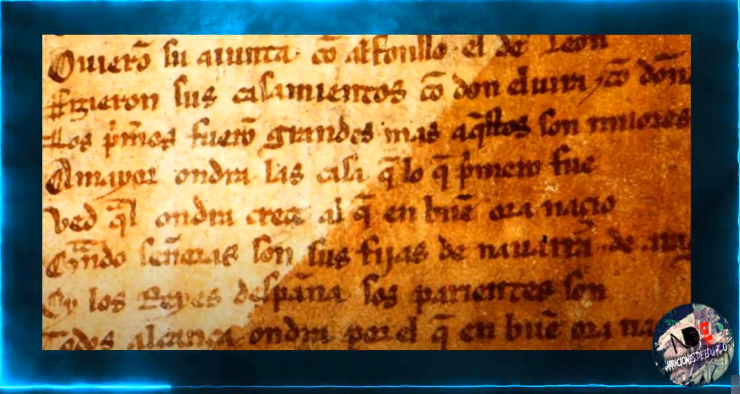 Ouierõ su aiunta cõ alfonsso el de Leon
ffizieron sus casamientos cõ don eluira ⁊ cõ doña
Los p̃meros fuerõ grandes mas aq̃stos son miiores
A mayor ondra las casa q̃ lo q̃ p̃mero fue
Ved q̃l ondra creçe al q̃ en buẽ ora naçio
señoras son sus fijas de nauarra ⁊ de
Oy los Reyes despaña sos parientes son
Todos alcança ondra por el q̃ en buẽ ora na
NARACIONESDEBURGO